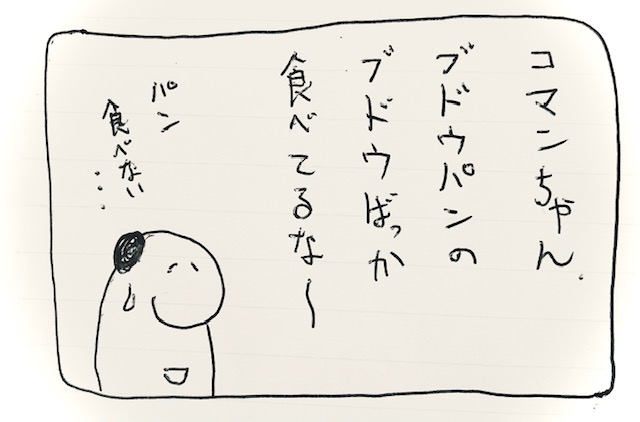 コマンちゃん
ブドウパンの
ブドウばっか
食べてるな〜
パン
食べない...